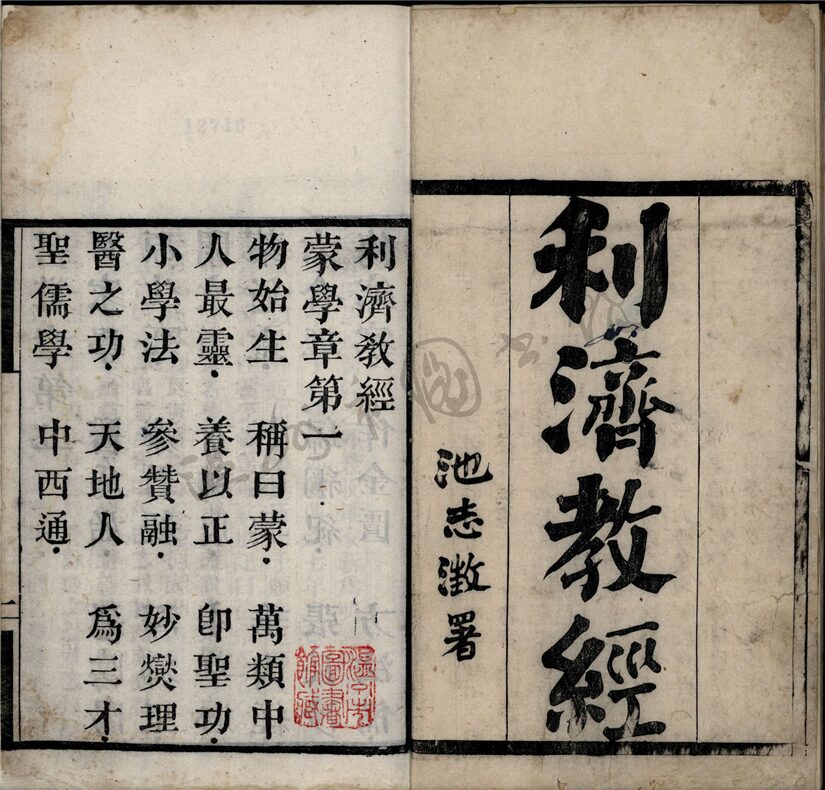 利濟教經
池志澂署
利濟教經
蒙學章第一
物始生.稱曰蒙.萬類中
人最靈.養以正.卽聖功.
小學法.參贊融.妙爕理
醫之功.天地人.爲三才.
聖儒學.中西通.
二
12716